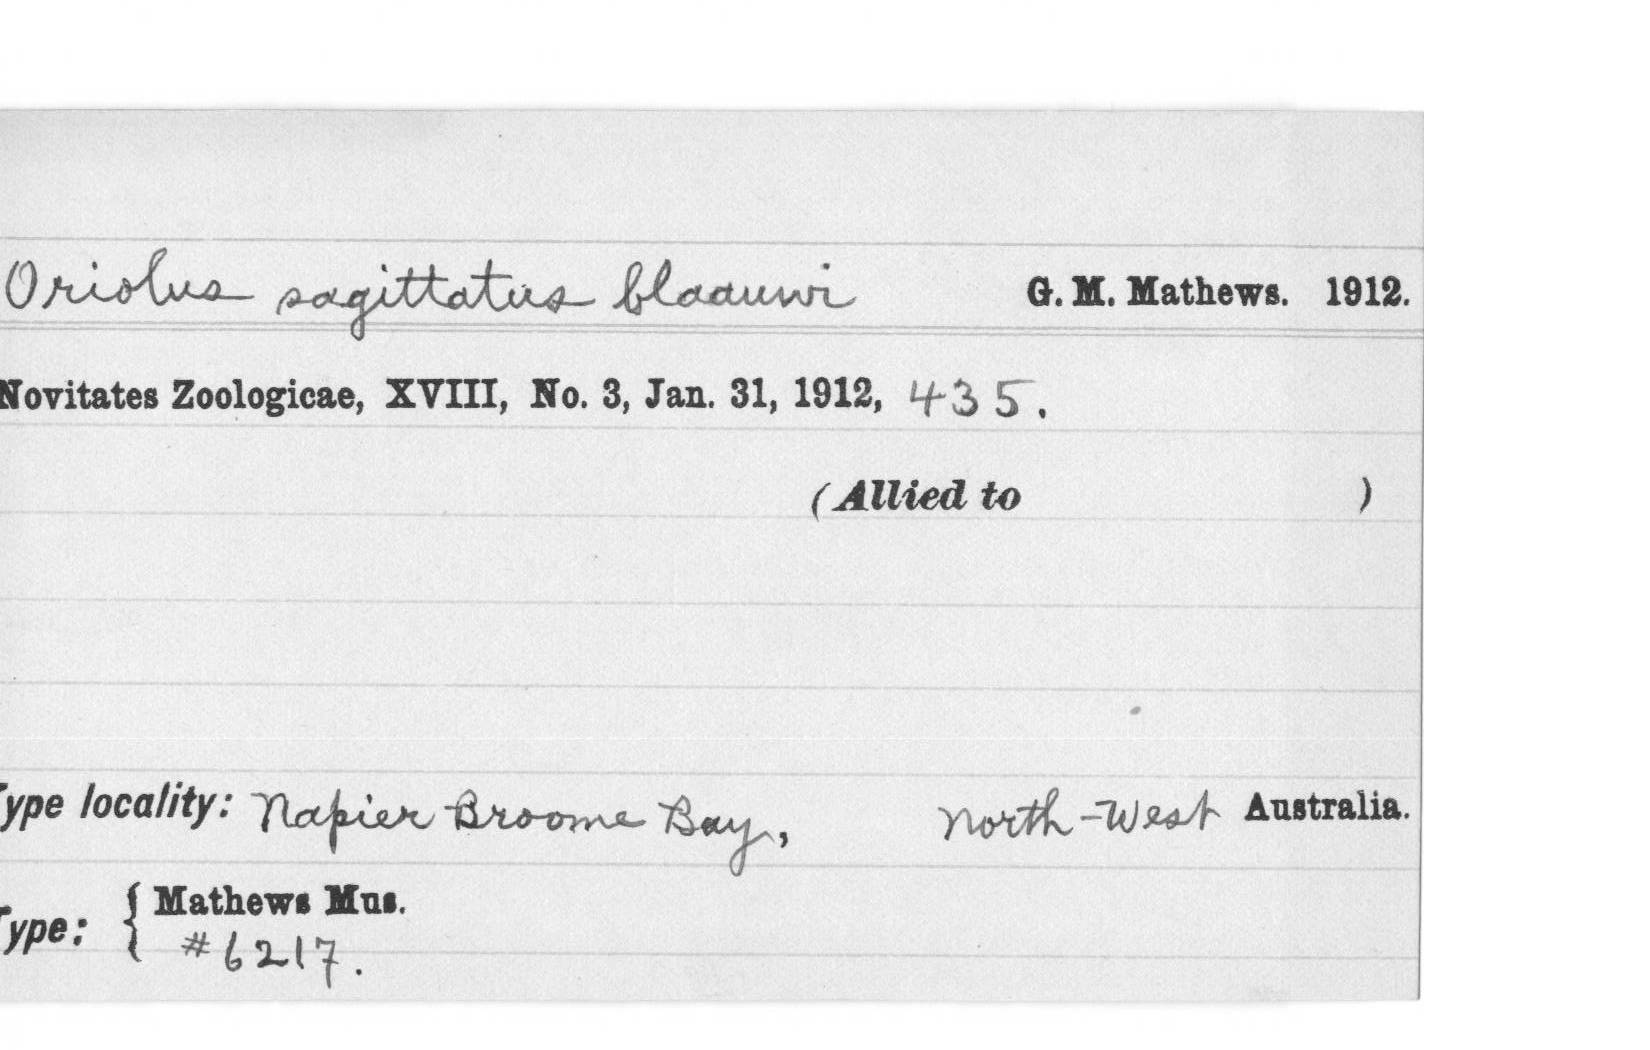 Oriolus sagittatus blaauwi G. M. Mathews. 1912.
Novitates Zoologicae, XVIII, No. 3, Jan. 31, 1912, 435.
(Allied to )
Type locality: Napier Broome Bay, North-West Australia.
Type: { Mathews Mus.
#6217.